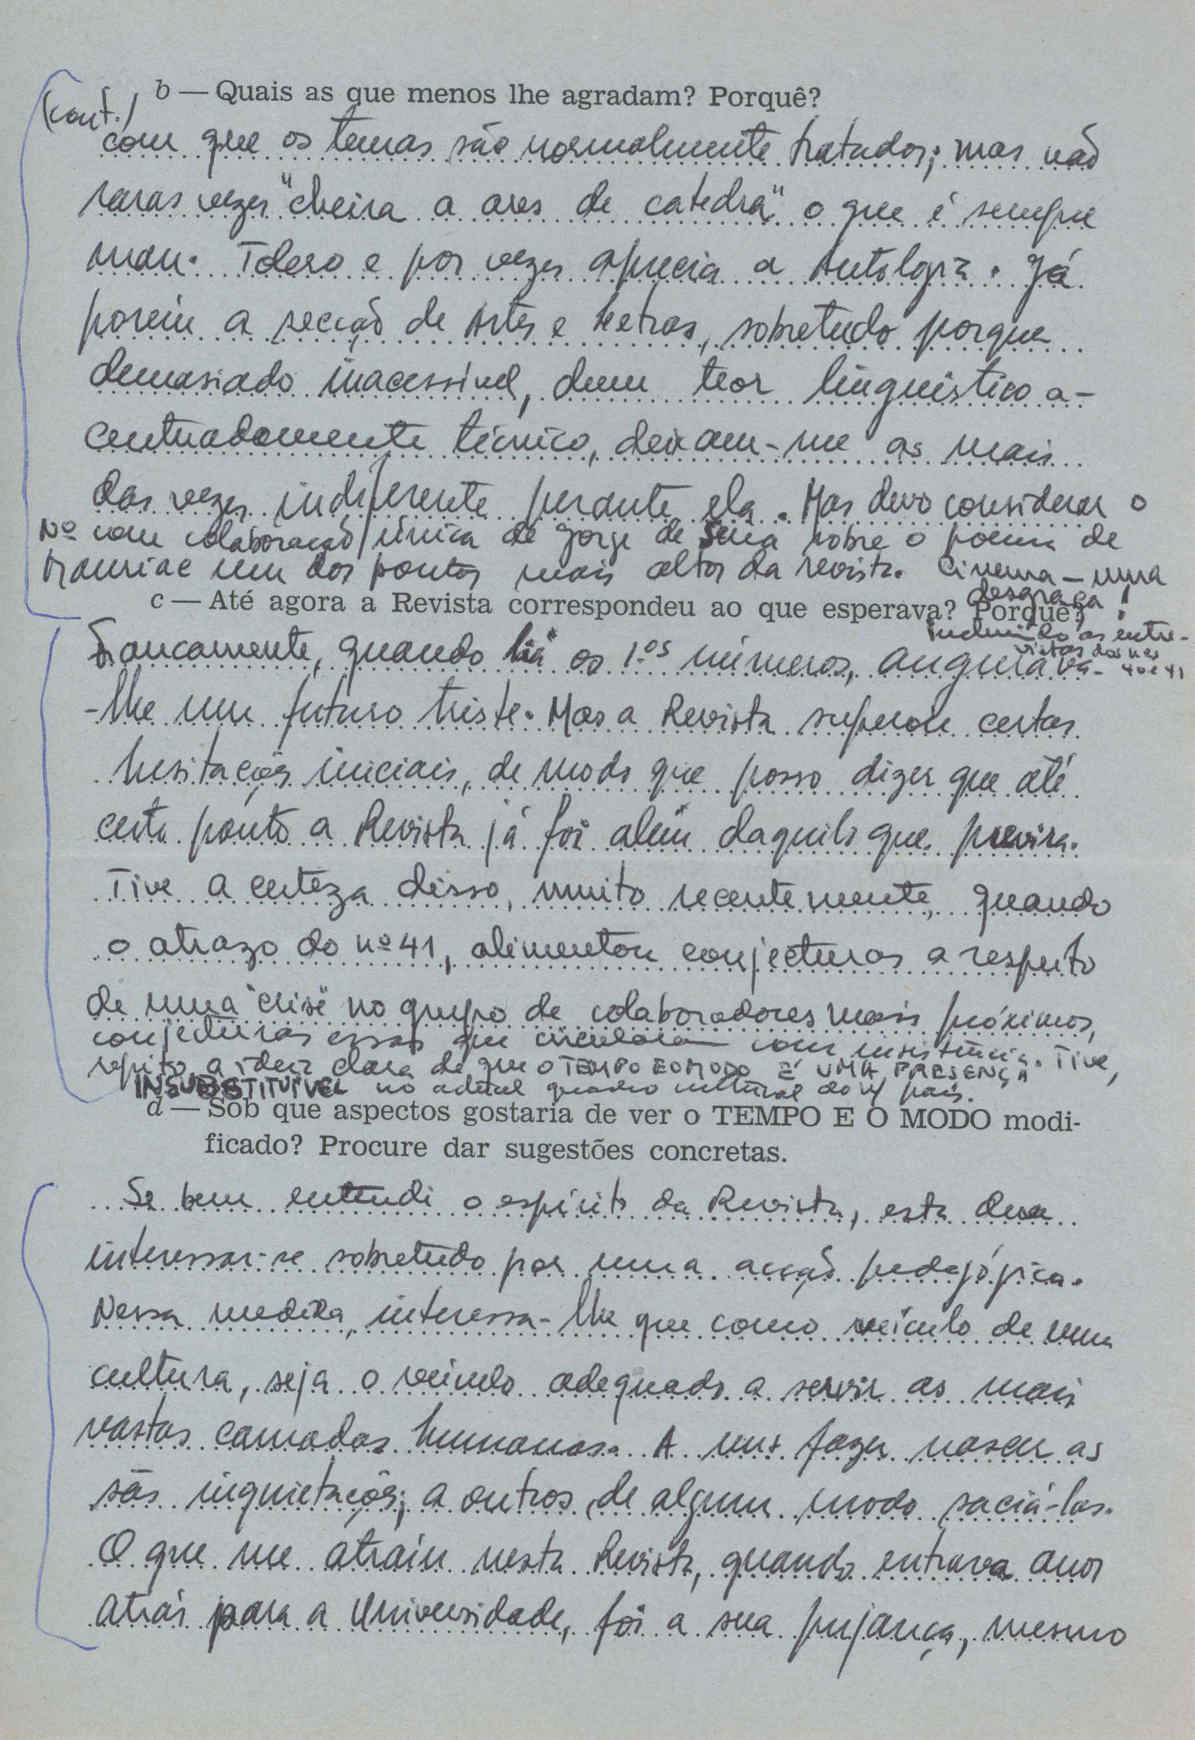 b — Quais as que menos lhe agradam? Porquê?
(cont.)
com que os temas são normalmente tratados; mas não
raras vezes "cheira a ares de catedra" o que é sempre
mau. Tolero e por vezes aprecia a Antologia. Já
porém a secção de Artes e Letras, sobretudo porque
demasiado inacessivel, dum teor linguístico a-
centuadamente técnico, deixam-me as mais
das vezes indiferente perante ela. Mas devo considerar o
Nº com colaboração única de Jorge de Sena sobre o poema de
Mauriac um dos pontos mais altos da revista. Cinema — uma
desgraça!
c — Até agora a Revista correspondeu ao que esperava? Porquê?
incluindo as entre-
vistas dos nos
40 e 41
Francamente, quando lia os 1.os números, augurava-
-lhe um futuro triste. Mas a Revista superou certas
hesitações iniciais, de modo que posso dizer que até
certo ponto a Revista já foi além daquilo que previra.
Tive a certeza disso, muito recentemente, quando
o atrazo do nº 41, alimentou conjecturas a respeito
de uma "crise" no grupo de colaboradores mais próximos,
conjecturas essas que circularam com insistência. Tive,
repito, a ideia clara de que O TEMPO E O MODO É UMA PRESENÇA
INSUBSTITUÍVEL no actual quadro cultural do n/ país.
d — Sob que aspectos gostaria de ver o TEMPO E O MODO modi-
ficado? Procure dar sugestões concretas.
Se bem entendi o espírito da Revista, esta deve
interessar-se sobretudo por uma acção pedagógica.
Nessa medida, interessa-lhe que como veículo de uma
cultura, seja o veículo adequado a servir as mais
vastas camadas humanas. A uns fazer nascer as
sãs inquietações; a outros, de algum modo saciá-las.
O que me atraíu nesta Revista, quando entrava anos
atrás para a Universidade, foi a sua pujança, mesmo